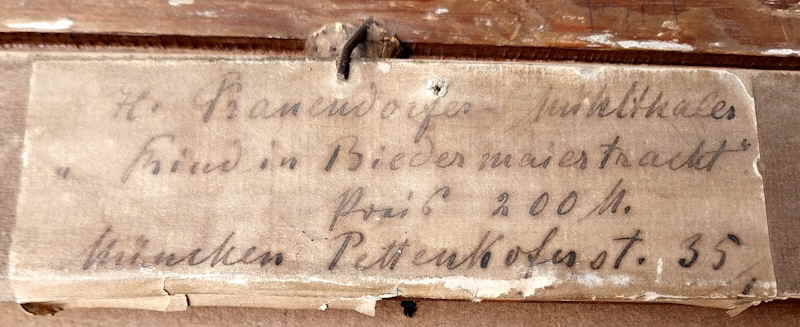 H. Frauendorfer-Mühlthaler
„Kind in Biedermaiertracht“
Preis 200 M.
München Pettenkoferst. 35